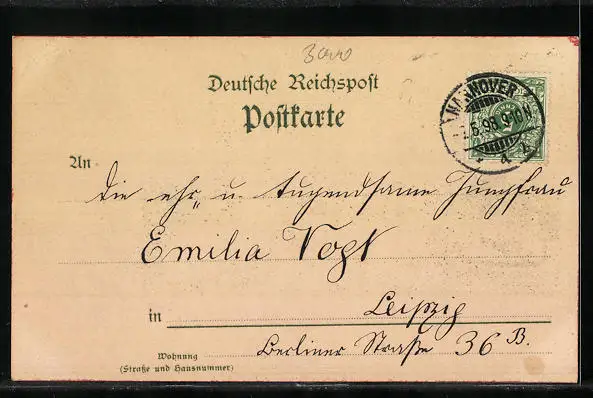 Deutsche Reichspost
Postkarte
HANNOVER
.5.98.9-10N
An
die ehr- u. tugendsame Jungfrau
Emilia Vogt
in Leipzig
Berliner Straße 36 B.
Wohnung
(Straße und Hausnummer)